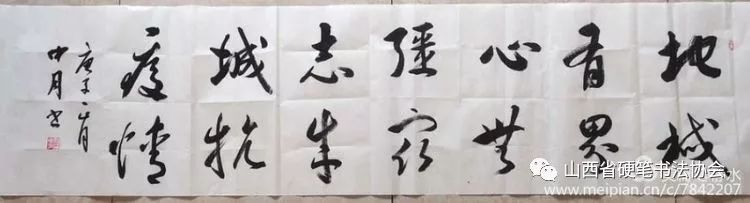 地域
有界
心無
疆众
志成
城抗
疫情
庚子二月
中月书
山西省硬笔书法协会
www.meipian.cn/c/7842207